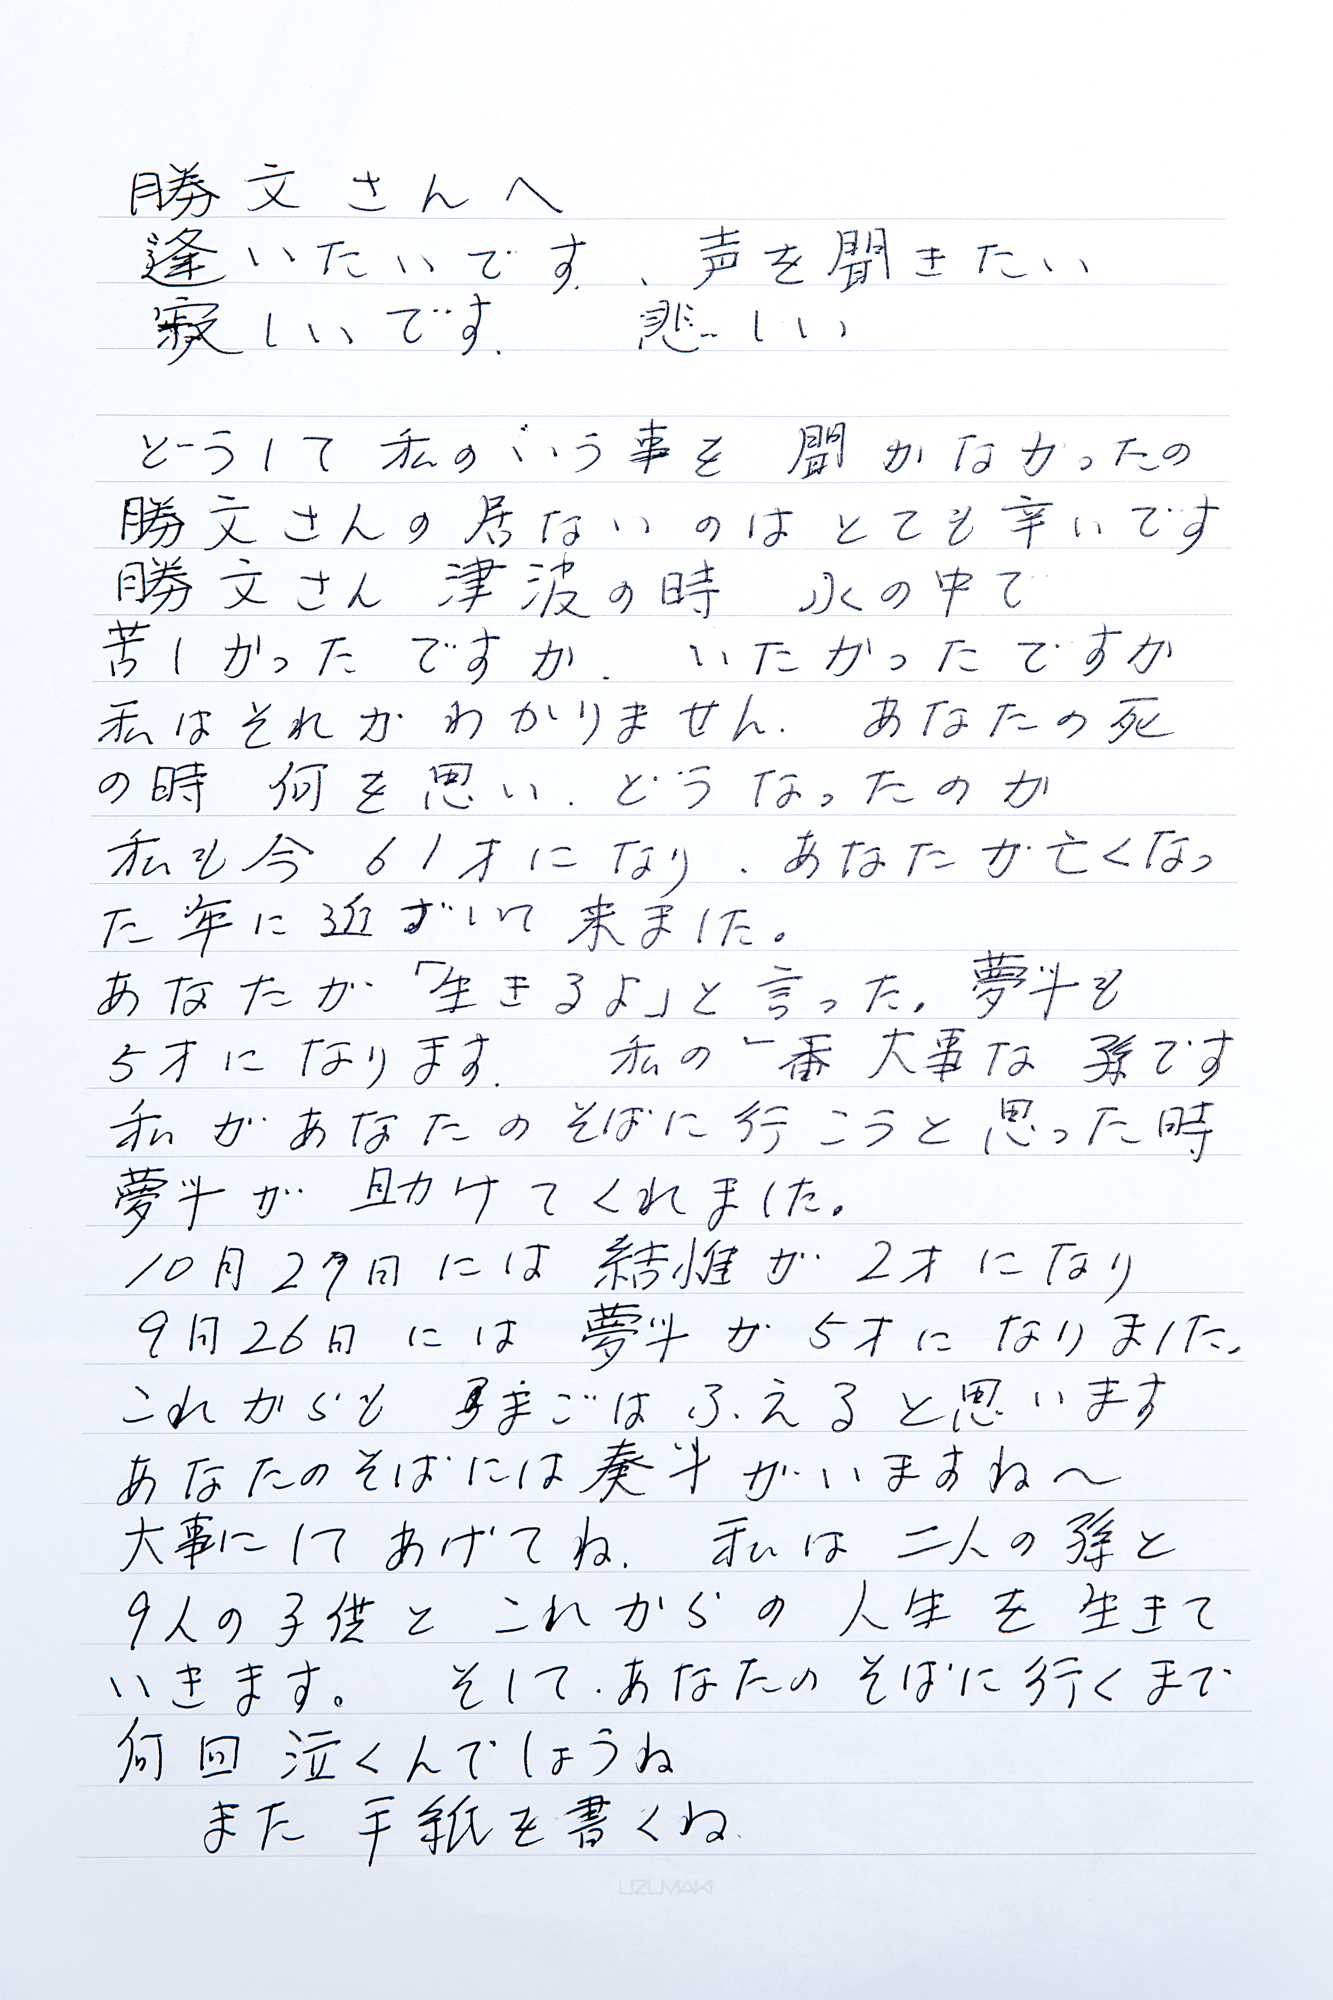 勝文さんへ
逢いたいです、声を聞きたい
寂しいです. 悲しい
どうして私のいう事を 聞かなかったの
勝文さんの居ないのはとても辛いです
勝文さん 津波の時 水の中で
苦しかったですか. いたかったですか
私はそれがわかりません. あなたの死
の時 何を思い. どうなったのか
私も今 61才になり. あなたが亡くなっ
た年に近ずいて来ました。
あなたが「生きるよ」と言った. 夢斗も
5才になります. 私の一番大事な孫です
私があなたのそばに行こうと思った時
夢斗が 助けてくれました。
10月29日には 結惟が 2才になり
9月26日には 夢斗が5才になりました.
これからも まごはふえると思います
あなたのそばには奏斗がいますね〜
大事にしてあげてね. 私は二人の孫と
9人の子供と これからの人生を生きて
いきます。 そして. あなたのそばに行くまで
何回 泣くんでしょうね
また 手紙を書くね.
UZUMAKI